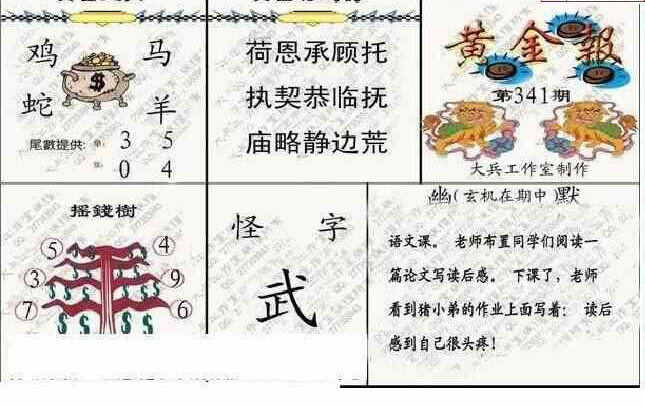 鸡 马
蛇 羊
尾數提供: 3 5
0 4
荷恩承顾托
执契恭临抚
庙略静边荒
黄金報
第341期
大兵工作室制作
摇錢樹
5 4
3 9
7 6
怪 字
武
幽(玄机在期中)默
语文课。 老师布置同学们阅读一
篇论文写读后感。 下课了，老师
看到猪小弟的作业上面写着： 读后
感到自己很头疼！